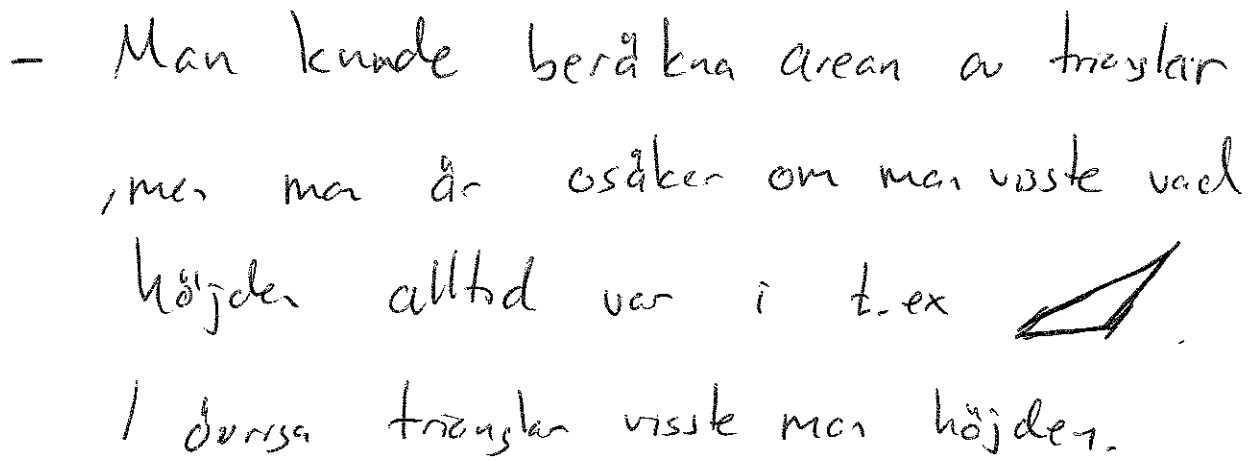 - Man kunde beräkna arean av trianglar
, men man är osäker om man visste vad
höjden alltid var i t.ex .
I övriga trianglar visste man höjden.